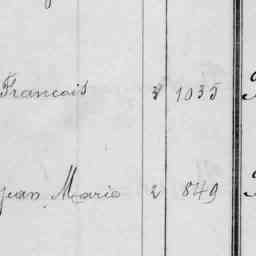 Francois 8 1035
Jean Marie 2 849